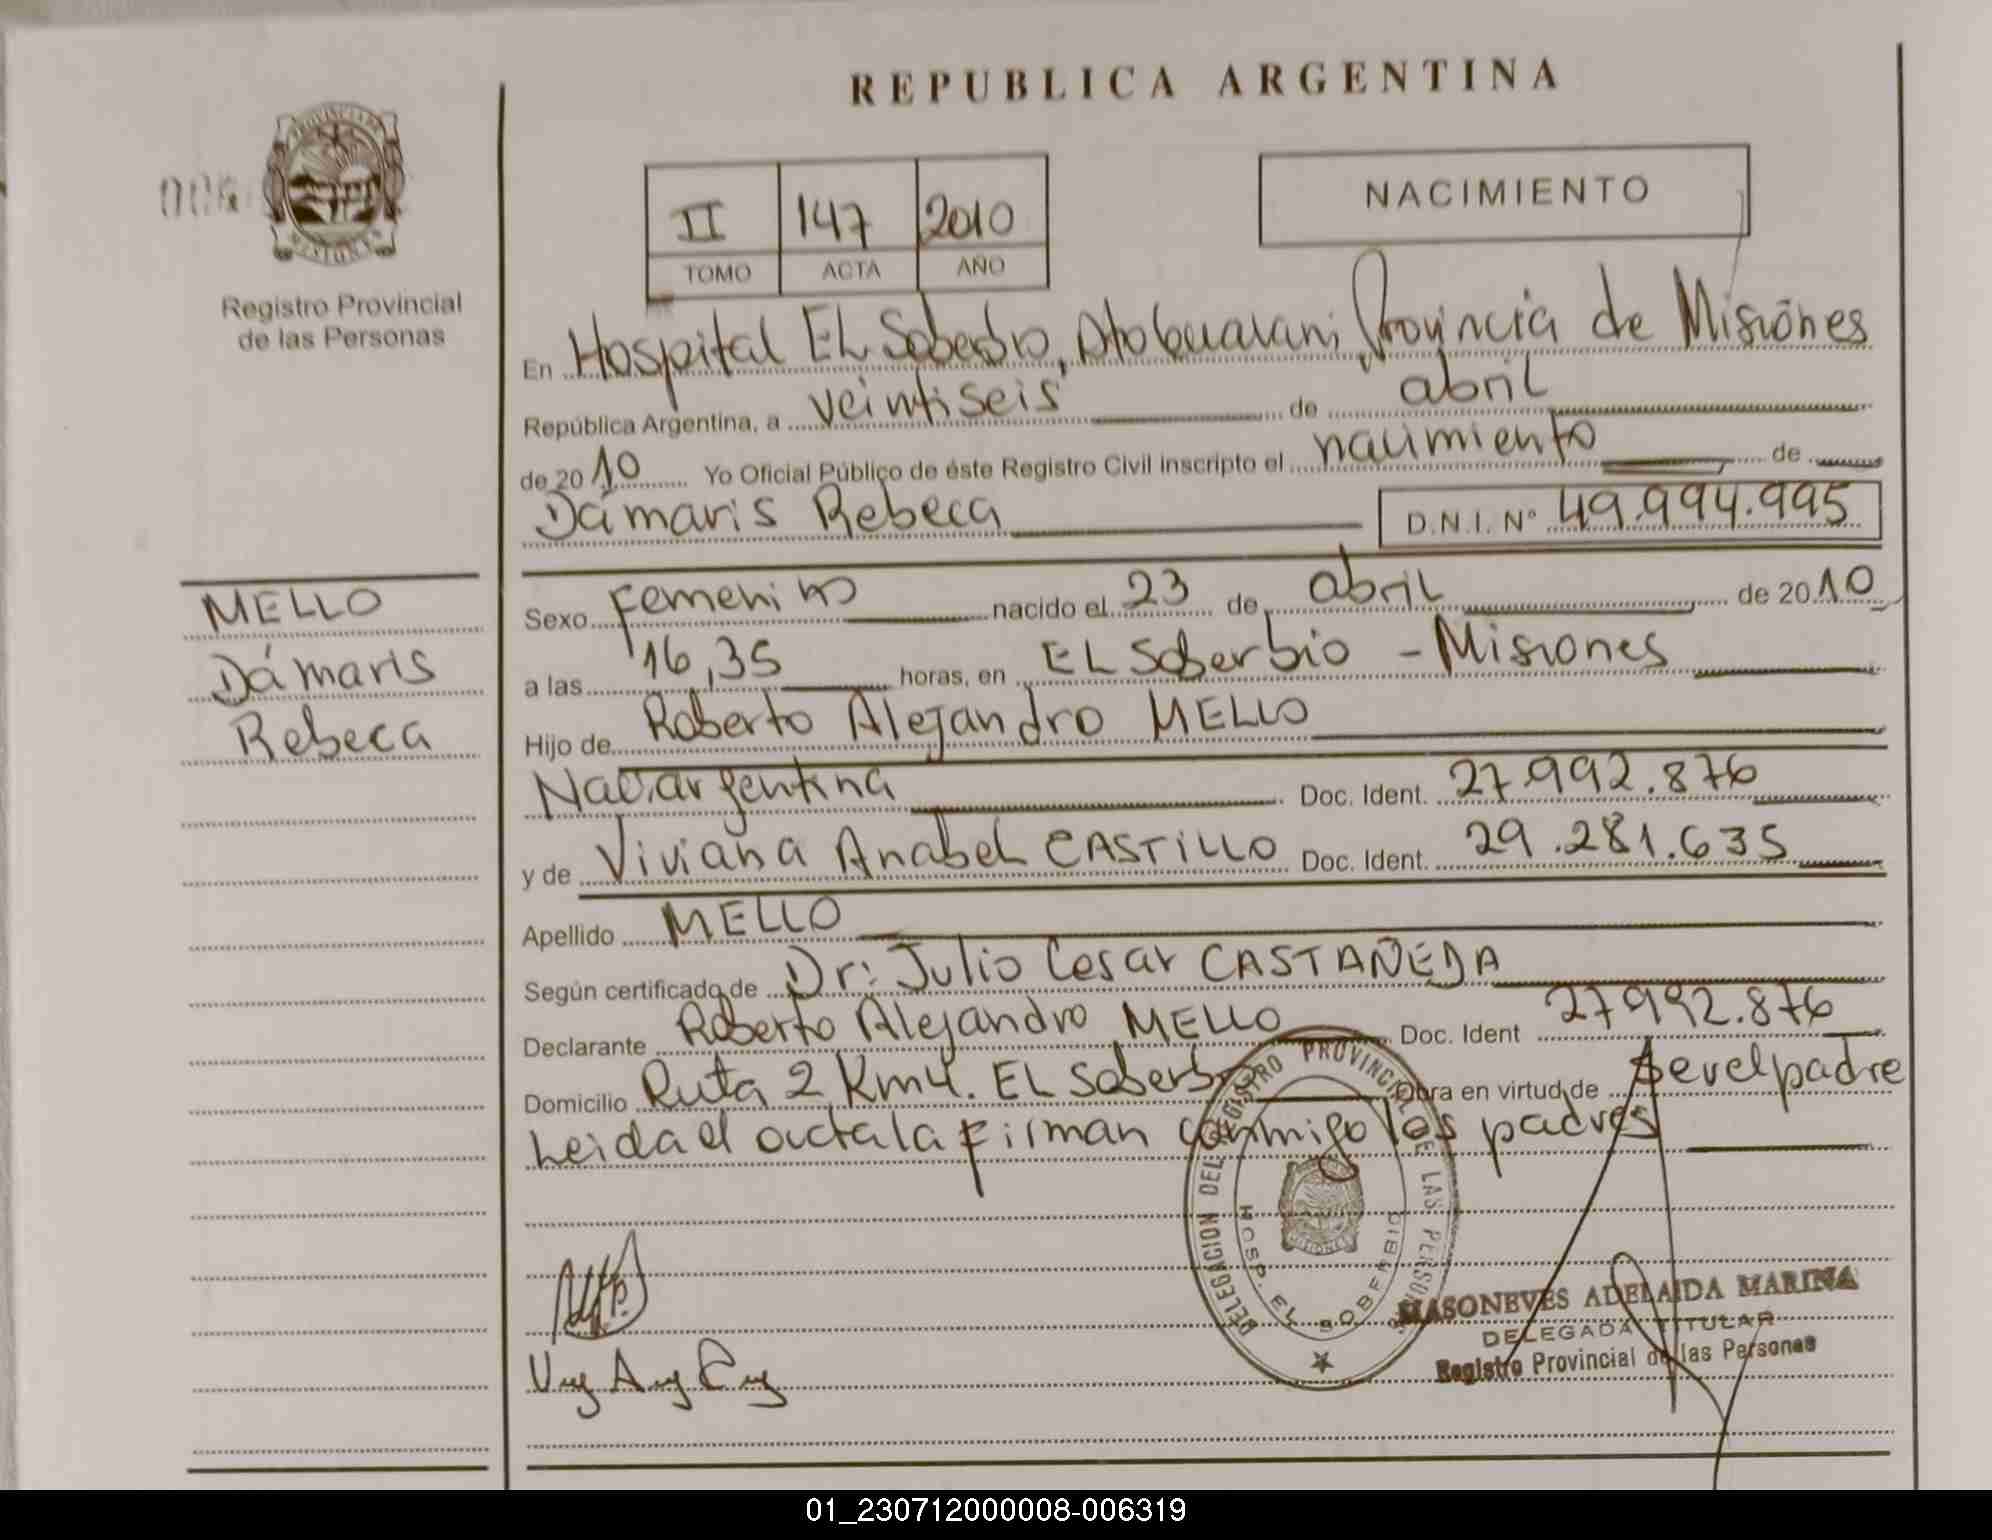 REPUBLICA ARGENTINA
PROVINCIA DE
MISIONES
Registro Provincial
de las Personas
II 147 2010
TOMO ACTA AÑO
NACIMIENTO
En Hospital EL Soberbio, Dto Guarani Provincia de Misiones
República Argentina, a veintiseis de abril
de 2010 Yo Oficial Público de éste Registro Civil inscripto el nacimiento de
Dámaris Rebeca D.N.I. N° 49.994.995
MELLO
Dámaris
Rebeca
Sexo Femenino nacido el 23 de abril de 2010
a las 16,35 horas, en EL Soberbio - Misiones
Hijo de Roberto Alejandro MELLO
Nac. argentina Doc. Ident. 27.992.876
y de Viviana Anabel CASTILLO Doc. Ident. 29.281.635
Apellido MELLO
Según certificado de Dr: Julio Cesar CASTAÑEDA
Declarante Roberto Alejandro MELLO Doc. Ident 27992.876
Domicilio Ruta 2 Km4. EL Soberbio Obra en virtud de ser el padre
Leida el acta la firman conmigo los padres
DELEGACION DEL REGISTRO PROVINCIAL DE LAS PERSONAS
HOSP. EL SOBERBIO
MISIONES
MASONEVES ADELAIDA MARINA
DELEGADA TITULAR
Registro Provincial de las Personas
01_230712000008-006319